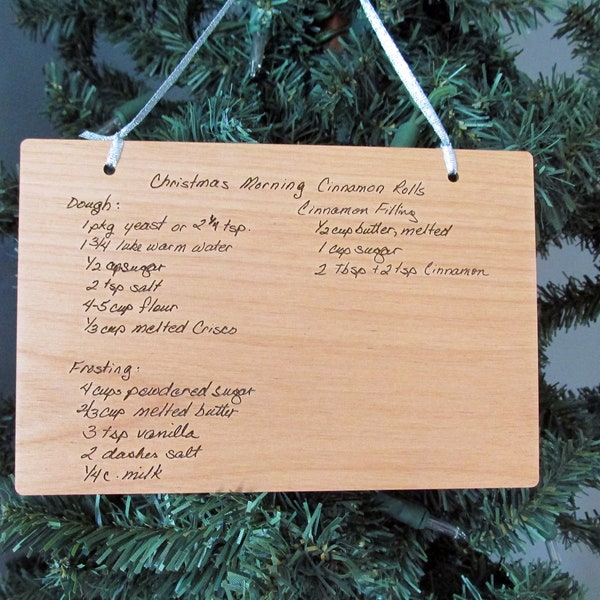 Christmas Morning Cinnamon Rolls
Dough:
1 pkg yeast or 2 1/4 tsp.
1 3/4 luke warm water
1/2 cup sugar
2 tsp salt
4-5 cup flour
1/3 cup melted Crisco
Cinnamon Filling
1/2 cup butter, melted
1 cup sugar
2 Tbsp + 2 tsp Cinnamon
Frosting:
4 cups powdered sugar
2/3 cup melted butter
3 tsp vanilla
2 dashes salt
1/4 c. milk